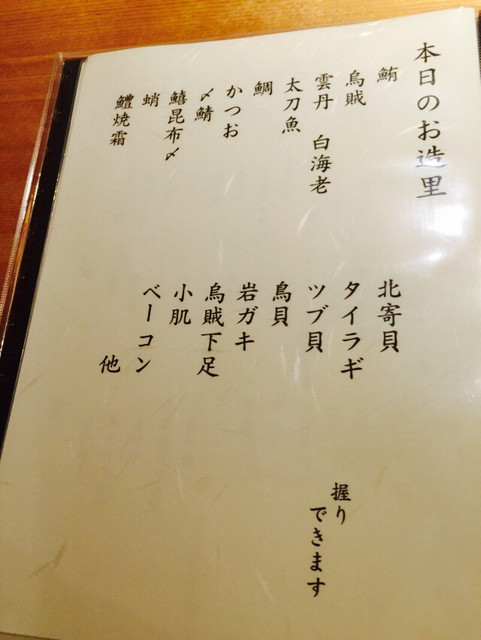 本日のお造里
鮪
烏賊
雲丹 白海老
太刀魚
鯛
かつお
〆鯖
鱚昆布〆
蛸
鱧焼霜
北寄貝
タイラギ
ツブ貝
鳥貝
岩ガキ
烏賊下足
小肌
ベーコン
他
握り
できます